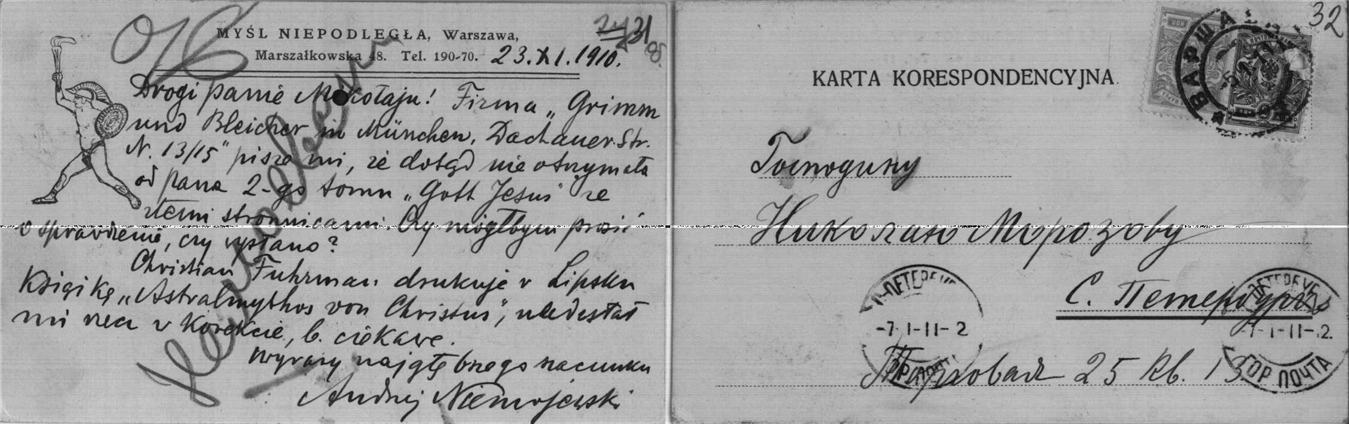 MYŚL NIEPODLEGŁA, Warszawa,
Marszałkowska 48. Tel. 190-70. 23.XI.1910.
31
Drogi Panie Mikołaju! Firma „Grimm
und Bleicher in München, Dachauer Str.
N. 13/15" pisze mi, że dotąd nie otrzymała
od pana 2-go tomu „Gott Jesus" ze
stronnicami. Czy mógłbym prosić
o sprawdzenie, czy wysłano?
Christian Fuhrman drukuje w Lipsku
książkę „Astralmythos von Christus",
mi rzecz w korekcie, b. ciekawe.
Wyrazy najgłębszego szacunku
Andrzej Niemojewski
32
KARTA KORESPONDENCYJNA.
ВАРШАВА
Господину
Николаю Морозову
С. Петербургъ
Торговая 25 кв. 13
С-ПЕТЕРБУРГ
-7 1-11-2
ГОР ПОЧТА
ПЕТЕРБУРГ
-7 1-11-2
ГОР ПОЧТА